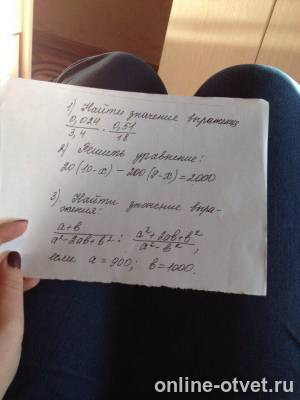 1) Найти значение выражения
0,024/3,4 · 0,51/18
2) Решить уравнение:
20(10-x) - 200(9-x)=2000
3) Найти значение выра-
жения:
a+b/a²-2ab+b² : a²+2ab+b²/a²-b²,
если a = 900; b=1000.
online-otvet.ru